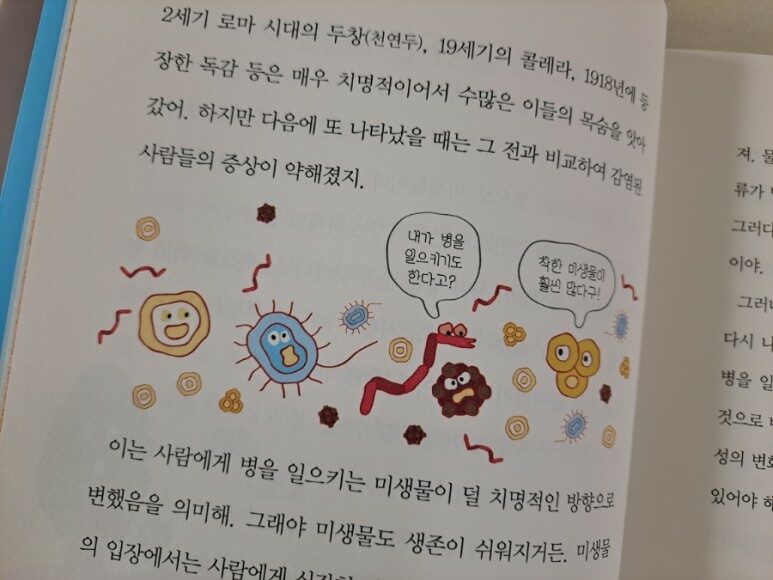 2세기 로마 시대의 두창(천연두), 19세기의 콜레라, 1918년에 등
장한 독감 등은 매우 치명적이어서 수많은 이들의 목숨을 앗아
갔어. 하지만 다음에 또 나타났을 때는 그 전과 비교하여 감염된
사람들의 증상이 약해졌지.
내가 병을
일으키기도
한다고?
착한 미생물이
훨씬 많다구!
이는 사람에게 병을 일으키는 미생물이 덜 치명적인 방향으로
변했음을 의미해. 그래야 미생물도 생존이 쉬워지거든. 미생물
의 입장에서는 사람에게
져. 물
류가
그러다
이야.
그러나
다시 나
병을 일
것으로
성의 변화
있어야 해